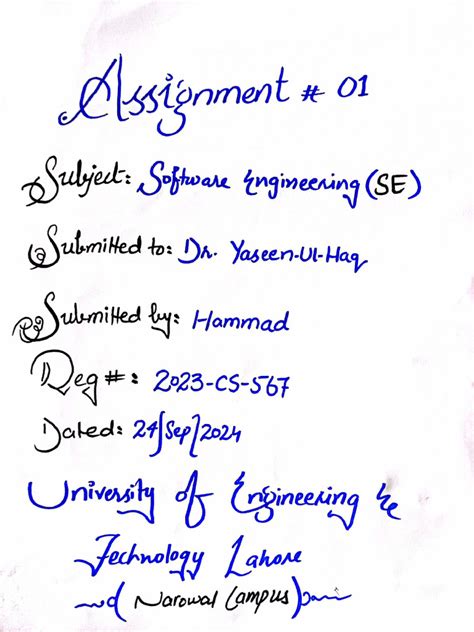 Assignment # 01
Subject: Software Engineering (SE)
Submitted to: Dr. Yaseen-Ul-Haq
Submitted by: Hammad
Reg #: 2023-CS-567
Dated: 24/Sep/2024
University of Engineering &
Technology Lahore
(Narowal Campus)